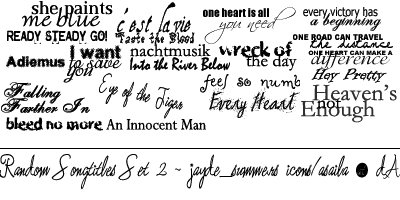 she paints
me blue
c'est la vie
one heart is all
you need
every victory has
a beginning
READY STEADY GO!
Taste the Blood
ONE ROAD CAN TRAVEL
the distance
Adiemus
I want
to save
you
nachtmusik
Into the River Below
wreck of
the day
ONE HEART CAN MAKE A
difference
Hey Pretty
Falling
Farther In
Eye of the Tiger
feel so numb
Every Heart
Heaven's
not
Enough
bleed no more
An Innocent Man
Random Songtitles Set 2 ~ jayde_summers icons/asaila @ dA